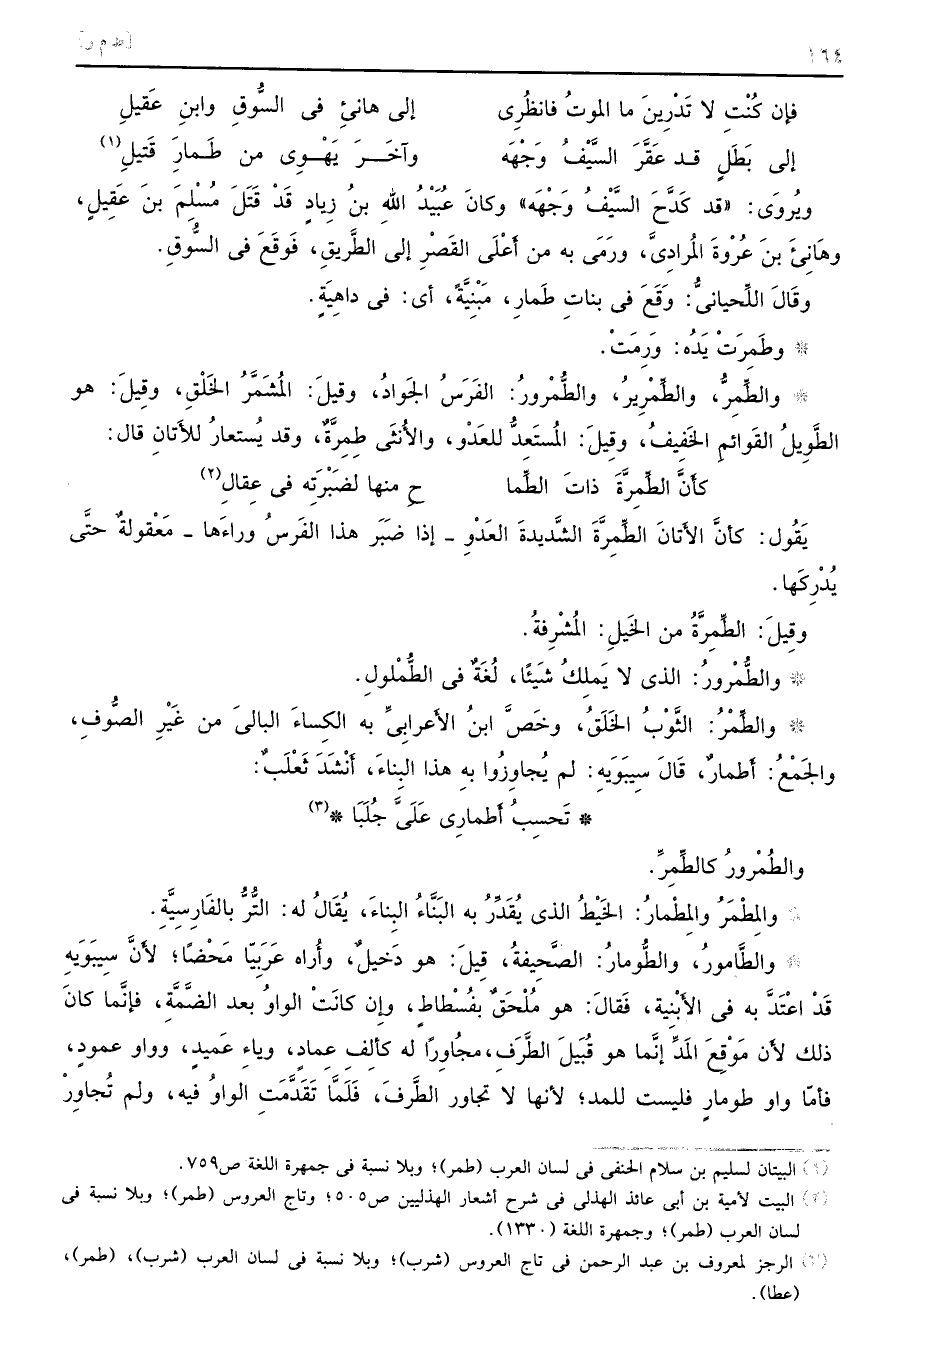 ١٦٤ [ط م ر]
فإن كُنْتِ لا تَدْرِينَ ما الموتُ فانظُرِى إلى هانئٍ فى السُّوقِ وابنِ عَقيلِ
إلى بَطَلٍ قد عَفَّرَ السَّيْفُ وَجْهَه وآخَرَ يَهْوِى من طَمارَ قَتيلِ(١)
ويُروَى: «قد كَدَّحَ السَّيْفُ وَجْهَه» وكانَ عُبَيْدُ اللهِ بنُ زيادٍ قَدْ قَتَلَ مُسْلِمَ بنَ عَقيلٍ،
وهَانِئَ بنَ عُرْوةَ المُرادِىَّ، ورَمَى به من أَعْلَى القَصْرِ إلى الطَّريقِ، فَوقَعَ فى السُّوقِ.
وقَالَ اللِّحيانىُّ: وَقَعَ فى بناتِ طَمارِ، مَبْنِيَّةً، أى: فى داهيَةٍ.
* وطَمِرَتْ يَدُه: وَرِمَتْ.
* والطِّمِرُّ، والطِّمْرِيرُ، والطُّمْرورُ: الفَرَسُ الجَوادُ، وقيلَ: المُشَمَّرُ الخَلْقِ، وقيلَ: هو
الطَّوِيلُ القَوائمِ الخَفيفُ، وقيلَ: المُستَعِدُّ للعَدْوِ، والأُنثَى طِمِرَّةٌ، وقد يُستعارُ للأتان قال:
كأنَّ الطِّمِرَّةَ ذاتَ الطِّما حِ منها لضَبْرَتِه فى عِقالِ(٢)
يَقُول: كأنَّ الأتانَ الطِّمِرَّةَ الشَّديدةَ العَدْوِ ـ إذا ضَبَرَ هذا الفَرَسُ وراءَها ـ مَعْقولةٌ حتَّى
يُدْرِكَها.
وقِيلَ: الطِّمِرَّةُ من الخَيلِ: المُشْرِفةُ.
* والطُّمْرورُ: الذى لا يَملِكُ شَيئًا، لُغَةٌ فى الطُّمْلولِ.
* والطِّمْرُ: الثَّوْبُ الخَلَقُ، وخَصَّ ابنُ الأعرابىِّ به الكِساءَ البالىَ من غَيْرِ الصُّوف،
والجَمْعُ: أطمارٌ، قَالَ سِيبَوَيه: لم يُجاوِزوا به هذا البِناءَ، أَنْشَدَ ثَعْلَبٌ:
* تَحسِبُ أَطمارِى عَلَىَّ جُلَبَا *(٣)
والطُمْرورُ كالطِّمِرِّ.
* والمِطْمَرُ والمِطْمارُ: الخَيْطُ الذى يُقَدِّرُ به البَنَّاءُ البِناءَ، يُقَالُ له: التُّرُّ بالفَارِسيَّةِ.
* والطَّامورُ، والطُّومارُ: الصَّحيفةُ، قيلَ: هو دَخيلٌ، وأُراه عَرَبيّا مَحْضًا؛ لأنَّ سِيبَوَيهِ
قَدْ اعْتَدَّ به فى الأَبْنِية، فَقالَ: هو مُلْحَقٌ بفُسْطاطٍ، وإن كانَتْ الواوُ بعد الضَّمَّةِ، فإنَّما كانَ
ذلك لأن مَوْقِعَ المَدِّ إنَّما هو قُبَيلَ الطَّرَفِ،مجُاورًا له كألِفِ عِمادٍ، وياءِ عَميدٍ، وواو عمودٍ،
فأمّا واو طومارٍ فليست للمد؛ لأنها لا تجاور الطَّرفَ، فَلَمَّا تَقَدَّمَتِ الواوُ فيه، ولم تُجاوِرْ
(١) البيتان لسليم بن سلام الحنفى فى لسان العرب (طمر)؛ وبلا نسبة فى جمهرة اللغة ص٧٥٩.
(٢) البيت لأمية بن أبى عائذ الهذلى فى شرح أشعار الهذليين ص٥٠٥؛ وتاج العروس (طمر)؛ وبلا نسبة فى
لسان العرب (طمر)؛ وجمهرة اللغة (١٣٣٠).
(٣) الرجز لمعروف بن عبد الرحمن فى تاج العروس (شرب)؛ وبلا نسبة فى لسان العرب (شرب)، (طمر)،
(عطا).